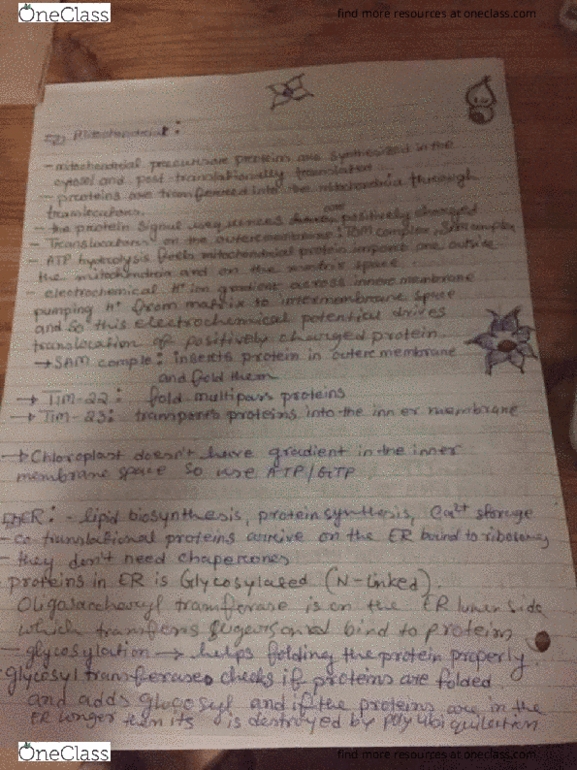 OneClass
find more resources at oneclass.com
Mitochondrial :
- mitochondrial precursor proteins are synthesized in the
cytosol and post-translationally
- proteins are transferred into the mitochondria through
translocators.
- the protein signal sequences are positively charged
- Translocators on the outer membrane : TOM complex, SAM complex
- ATP hydrolysis mitochondrial protein import are outside
the mitochondria and on the matrix space
- electrochemical H⁺ ion gradient across inner membrane
pumping H⁺ from matrix to intermembrane space
and so this electrochemical potential drives
translocation of positively charged protein.
→ SAM comple : inserts protein in outer membrane
and fold them
→ TIM-22 : fold multipass proteins
→ TIM-23 : transports proteins into the inner membrane
→ Chloroplast doesn't have gradient in the inner
membrane space so use ATP/GTP
ER : - lipid biosynthesis, protein synthesis, Ca²⁺ storage
- co-translational proteins arrive on the ER bind to ribosomes
- they don't need chaperones
proteins in ER is Glycosylated (N-linked).
Oligosaccharyl transferase is on the ER lumen side
which transfers sugars and bind to proteins
- glycosylation → helps folding the protein properly.
glycosyl transferase checks if proteins are folded
and adds glucosyl and if the proteins are in the
ER longer then its is destroyed by poly
OneClass
find more resources at oneclass.com